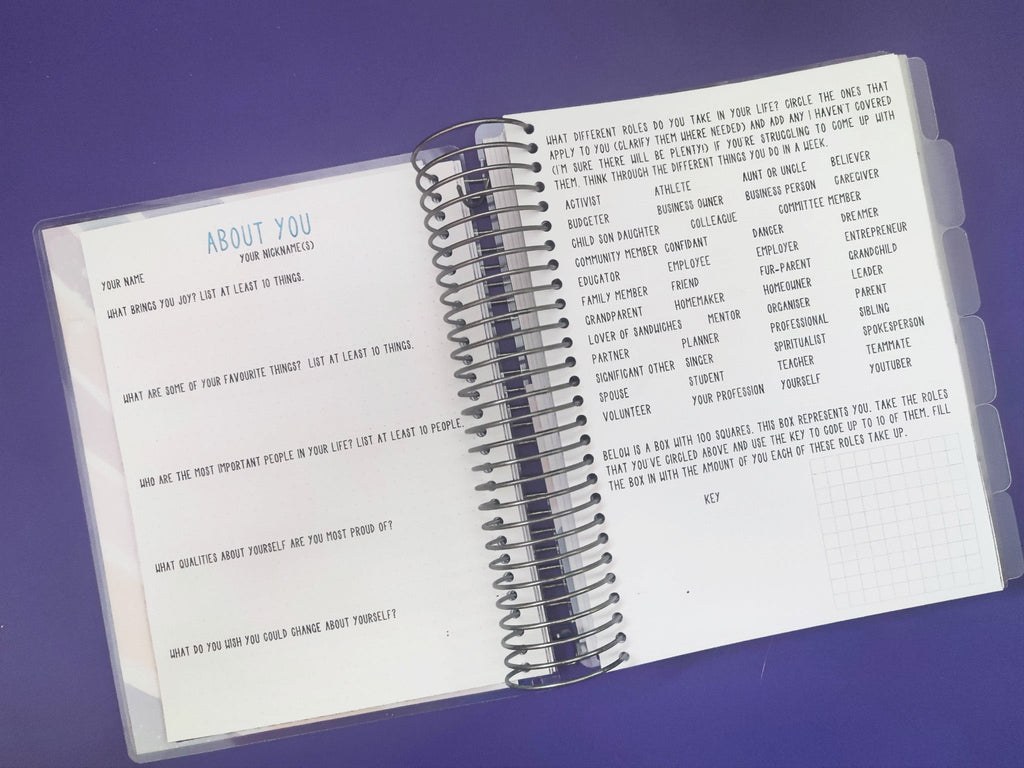 ABOUT YOU
YOUR NAME YOUR NICKNAME(S)
WHAT BRINGS YOU JOY? LIST AT LEAST 10 THINGS.
WHAT ARE SOME OF YOUR FAVOURITE THINGS? LIST AT LEAST 10 THINGS.
WHO ARE THE MOST IMPORTANT PEOPLE IN YOUR LIFE? LIST AT LEAST 10 PEOPLE.
WHAT QUALITIES ABOUT YOURSELF ARE YOU MOST PROUD OF?
WHAT DO YOU WISH YOU COULD CHANGE ABOUT YOURSELF?
WHAT DIFFERENT ROLES DO YOU TAKE IN YOUR LIFE? CIRCLE THE ONES THAT
APPLY TO YOU (CLARIFY THEM WHERE NEEDED) AND ADD ANY I HAVEN'T COVERED
(I'M SURE THERE WILL BE PLENTY!) IF YOU'RE STRUGGLING TO COME UP WITH
THEM, THINK THROUGH THE DIFFERENT THINGS YOU DO IN A WEEK.
ACTIVIST ATHLETE AUNT OR UNCLE BELIEVER
BUDGETER BUSINESS OWNER BUSINESS PERSON CAREGIVER
CHILD SON DAUGHTER COLLEAGUE COMMITTEE MEMBER
COMMUNITY MEMBER CONFIDANT DANGER DREAMER
EDUCATOR EMPLOYEE EMPLOYER ENTREPRENEUR
FAMILY MEMBER FRIEND FUR-PARENT GRANDCHILD
GRANDPARENT HOMEMAKER HOMEOWNER LEADER
LOVER OF SANDWICHES MENTOR ORGANISER PARENT
PARTNER PLANNER PROFESSIONAL SIBLING
SIGNIFICANT OTHER SINGER SPIRITUALIST SPOKESPERSON
SPOUSE STUDENT TEACHER TEAMMATE
VOLUNTEER YOUR PROFESSION YOURSELF YOUTUBER
BELOW IS A BOX WITH 100 SQUARES. THIS BOX REPRESENTS YOU. TAKE THE ROLES
THAT YOU'VE CIRCLED ABOVE AND USE THE KEY TO CODE UP TO 10 OF THEM. FILL
THE BOX IN WITH THE AMOUNT OF YOU EACH OF THESE ROLES TAKE UP.
KEY